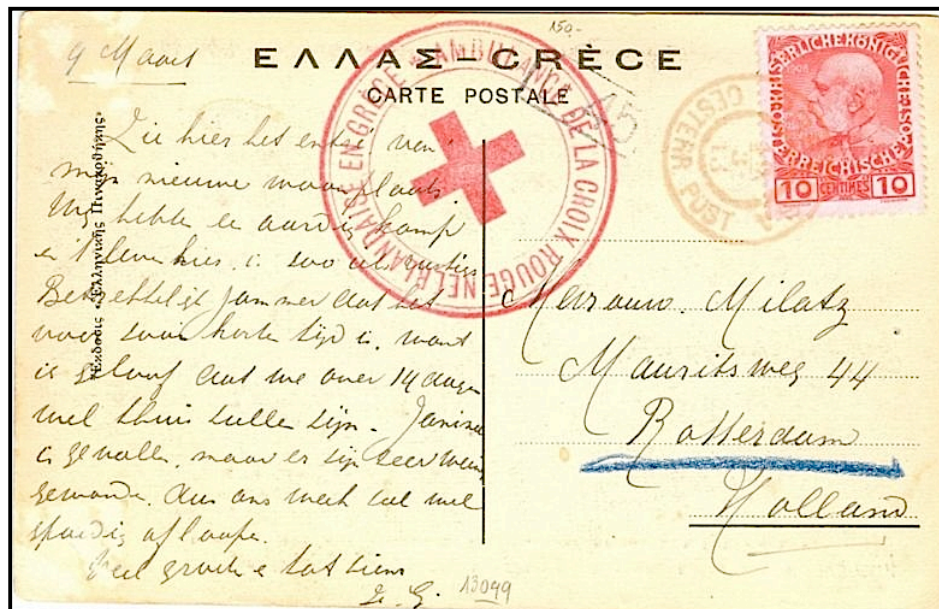 150-
9 Maart
ΕΛΛΑΣ–GRÈCE
CARTE POSTALE
AMBULANCE DE LA CROIX ROUGE NEERLANDAISE EN GRÈCE
45
OESTERR POST
KAISERLICHE KÖNIGLICHE ÖSTERREICHISCHE POST
1908
10 CENTIMES 10
Ἔκδοσις «Ἑλληνικῆς Πινακοθήκης»
Zie hier het entrée van
mijn nieuwe woonplaats
Wij hebben een aardig kamp
en 't leven hier is zoo als rustig
Betrekkelijk jammer dat het
voor zoo'n korte tijd is, want
ik geloof dat we over 14 dagen
wel thuis zullen zijn. Janina
is gevallen, maar er zijn zeer weinig
gewonden, dus ons werk zal wel
spoedig afloopen.
Veel groeten e tot ziens
13099
Mevrouw Milatz
Mauritsweg 44
Rotterdam
Holland